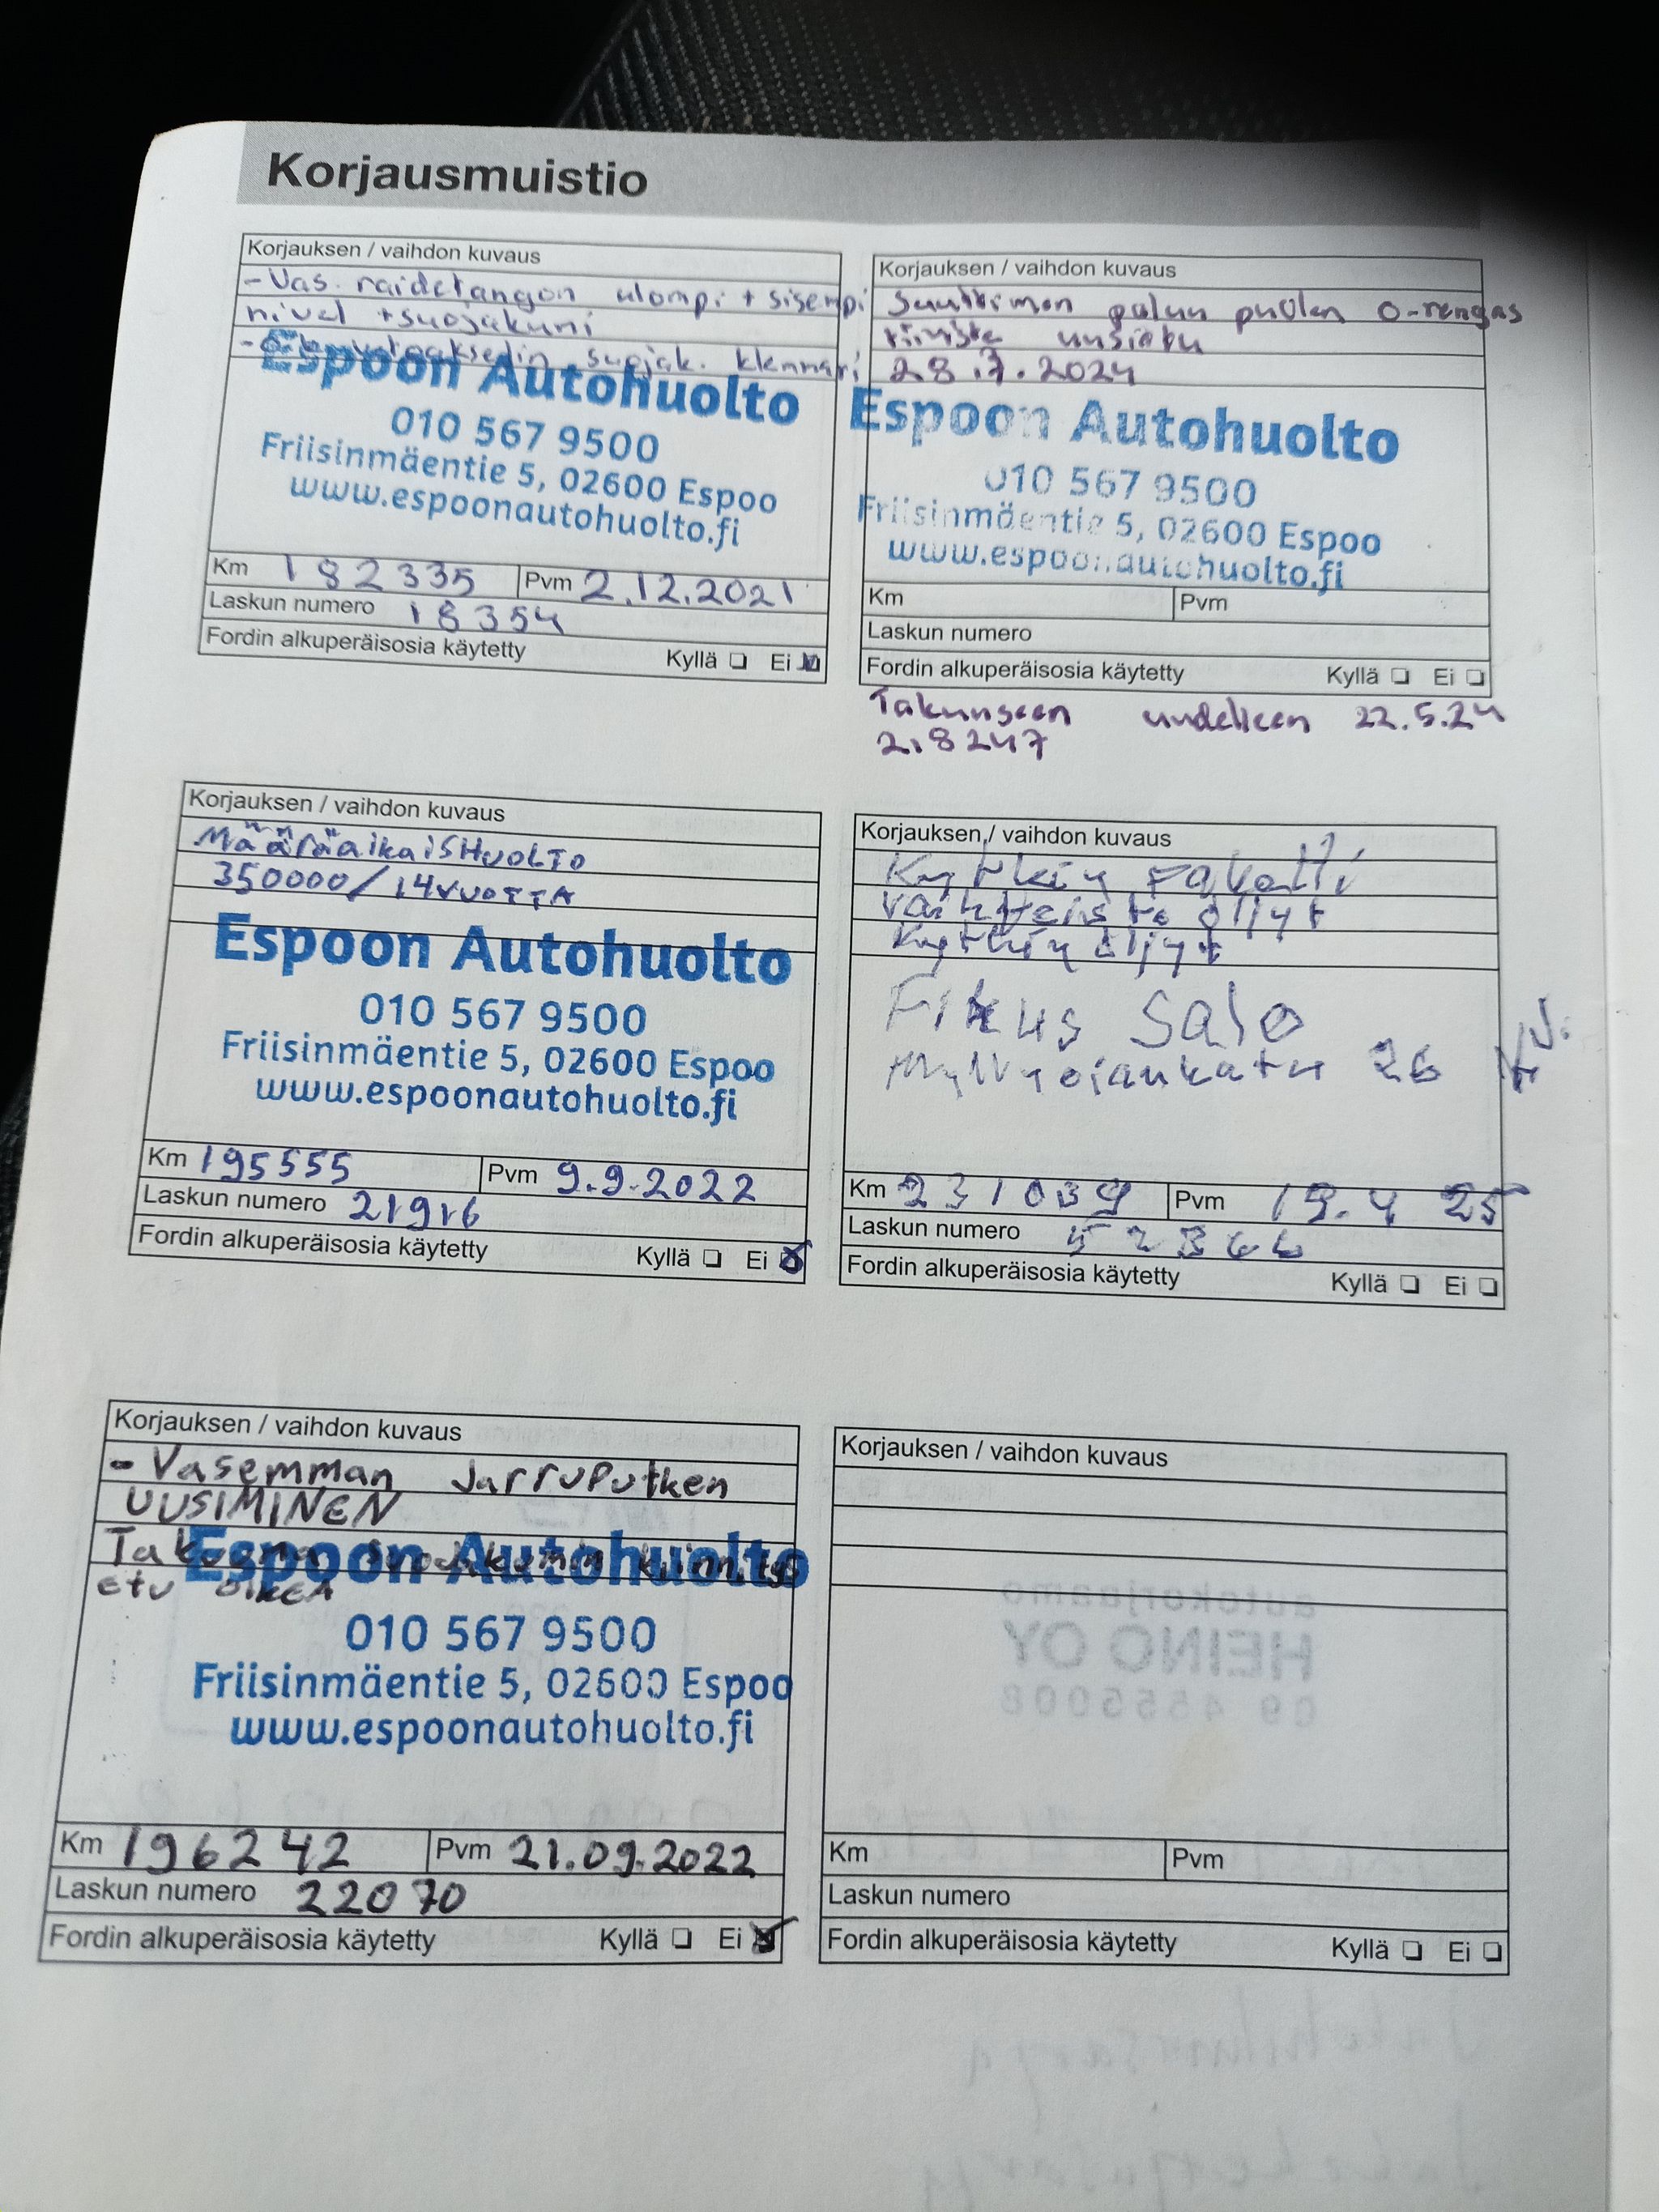 Korjausmuistio
Korjauksen / vaihdon kuvaus
-Vas. raidetangon ulompi + sisempi
nivel + suojakumi
suojak. klemmari
Espoon Autohuolto
010 567 9500
Friisinmäentie 5, 02600 Espoo
www.espoonautohuolto.fi
Km 182335 Pvm 2.12.2021
Laskun numero 18354
Fordin alkuperäisosia käytetty Kyllä Ei
Korjauksen / vaihdon kuvaus
Suuttimen paluu puolen o-rengas
tiiviste uusittu
28.7.2024
Espoon Autohuolto
010 567 9500
Friisinmäentie 5, 02600 Espoo
www.espoonautohuolto.fi
Km Pvm
Laskun numero
Fordin alkuperäisosia käytetty Kyllä Ei
Takuuseen uudelleen 22.5.24
Korjauksen / vaihdon kuvaus
MääräaikaisHuolto
350000/14vuotta
Espoon Autohuolto
010 567 9500
Friisinmäentie 5, 02600 Espoo
www.espoonautohuolto.fi
Km 195555 Pvm 9.9.2022
Laskun numero 21916
Fordin alkuperäisosia käytetty Kyllä Ei
Korjauksen / vaihdon kuvaus
Kytkin paketti
vaihteisto öljyt
Kytkin öljyt
Fixus Salo
Myllyojankatu 26
Km 231039 Pvm 19.4 25
Laskun numero 52366
Fordin alkuperäisosia käytetty Kyllä Ei
Korjauksen / vaihdon kuvaus
- Vasemman Jarruputken
UUSIMINEN
etu OIKEA
Espoon Autohuolto
010 567 9500
Friisinmäentie 5, 02600 Espoo
www.espoonautohuolto.fi
Km 196242 Pvm 21.09.2022
Laskun numero 22070
Fordin alkuperäisosia käytetty Kyllä Ei
Korjauksen / vaihdon kuvaus
Km Pvm
Laskun numero
Fordin alkuperäisosia käytetty Kyllä Ei